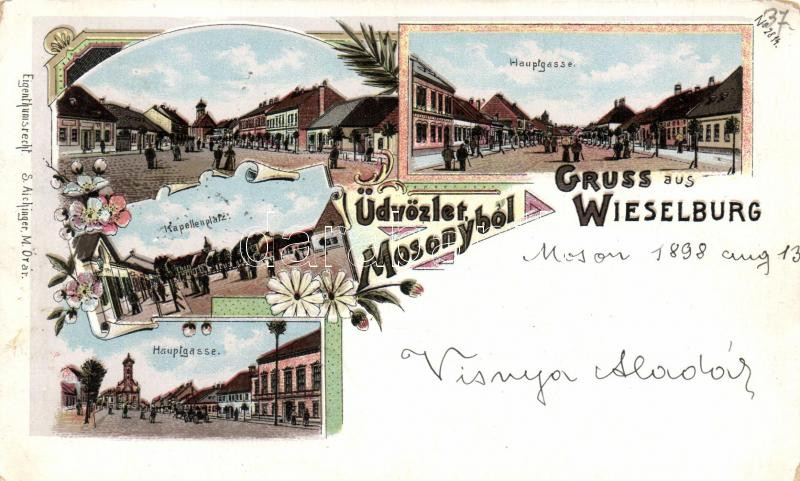 37
Hauptgasse.
Kapellenplatz.
Üdvözlet
Mosonyból
GRUSS aus
WIESELBURG
Moson 1898 aug 13
Visnya Aladár
Hauptgasse.
Eigenthumsrecht S. Aichinger, M. Óvár.